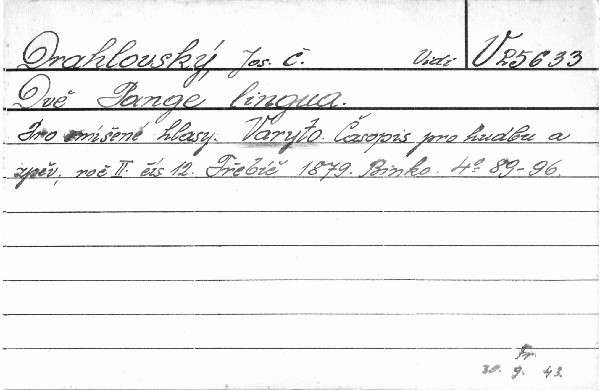 Drahlovský, Jos. Č. Vidi V 25633
Dvě Pange lingua.
Pro smíšené hlasy. Varyto. Časopis pro hudbu a
zpěv, roč II. čís 12. Třebíč 1879. Binko. 4° 89-96.
Fr.
30. 9. 43.